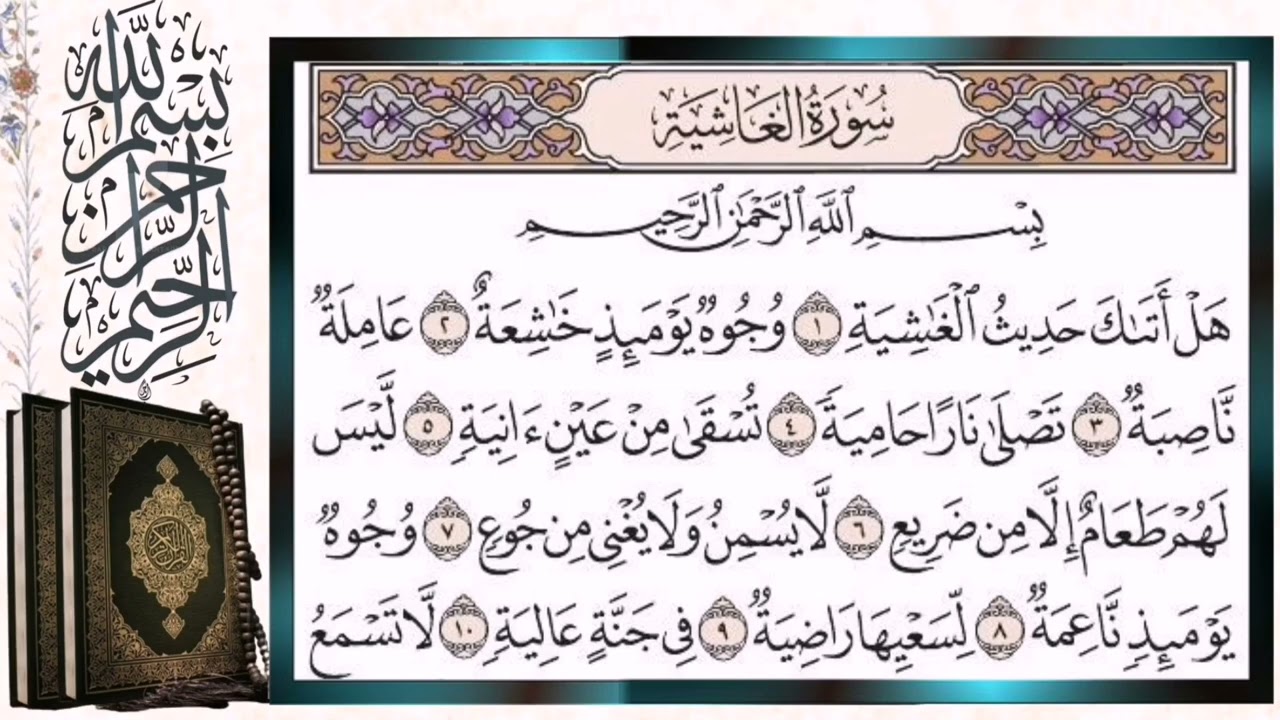 بسم الله الرحمن الرحيم
سُورَةُ الغَاشِيَةِ
بِسْمِ ٱللَّهِ ٱلرَّحْمَٰنِ ٱلرَّحِيمِ
هَلْ أَتَىٰكَ حَدِيثُ ٱلْغَٰشِيَةِ ١ وُجُوهٌ يَوْمَئِذٍ خَٰشِعَةٌ ٢ عَامِلَةٌ
نَّاصِبَةٌ ٣ تَصْلَىٰ نَارًا حَامِيَةً ٤ تُسْقَىٰ مِنْ عَيْنٍ ءَانِيَةٍ ٥ لَّيْسَ
لَهُمْ طَعَامٌ إِلَّا مِن ضَرِيعٍ ٦ لَّا يُسْمِنُ وَلَا يُغْنِى مِن جُوعٍ ٧ وُجُوهٌ
يَوْمَئِذٍ نَّاعِمَةٌ ٨ لِّسَعْيِهَا رَاضِيَةٌ ٩ فِى جَنَّةٍ عَالِيَةٍ ١٠ لَّا تَسْمَعُ